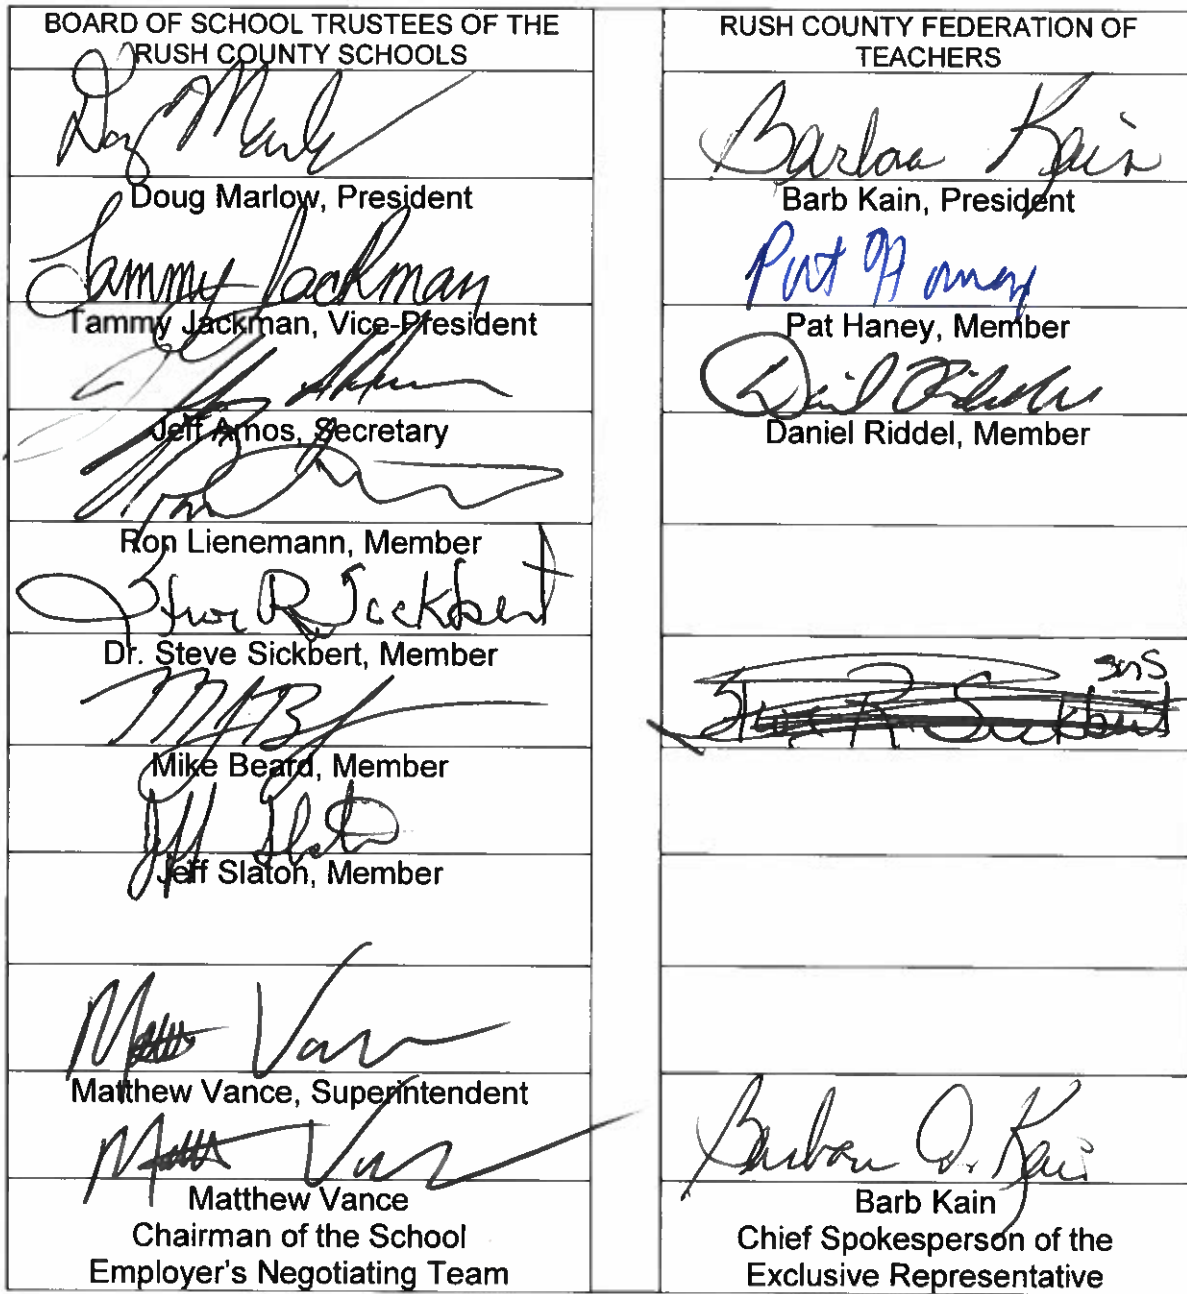 BOARD OF SCHOOL TRUSTEES OF THE
RUSH COUNTY SCHOOLS
Doug Marlow, President
Tammy Jackman
Tammy Jackman, Vice-President
Jeff Amos, Secretary
Ron Lienemann, Member
Steve R Sickbert
Dr. Steve Sickbert, Member
Mike Beard, Member
Jeff Slaton
Jeff Slaton, Member
Matthew Vance, Superintendent
Matthew Vance
Chairman of the School
Employer's Negotiating Team
RUSH COUNTY FEDERATION OF
TEACHERS
Barbara Kain
Barb Kain, President
Pat Haney
Pat Haney, Member
Daniel Riddel, Member
SRS
Steve R. Sickbert
Barbara A. Kain
Barb Kain
Chief Spokesperson of the
Exclusive Representative